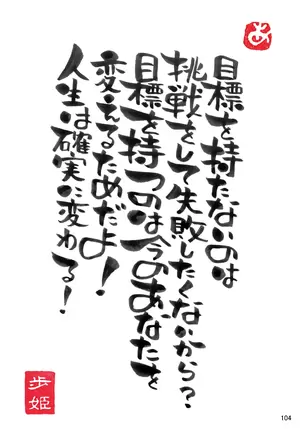 目標を持たないのは
挑戦をして失敗したくないから?
目標を持つのは今のあなたを
変えるためだよ!
人生は確実に変わる!
歩姫
104